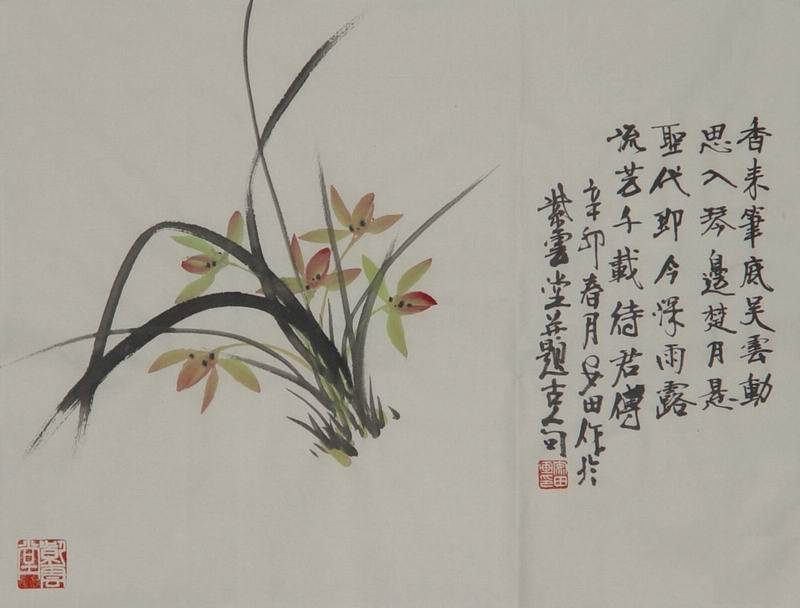 香来筆底吴雲動
思入琴邊楚月
聖代即今深雨露
流芳千載待君傳
辛卯春月田作於
紫雲堂并題古人句
紫雲堂